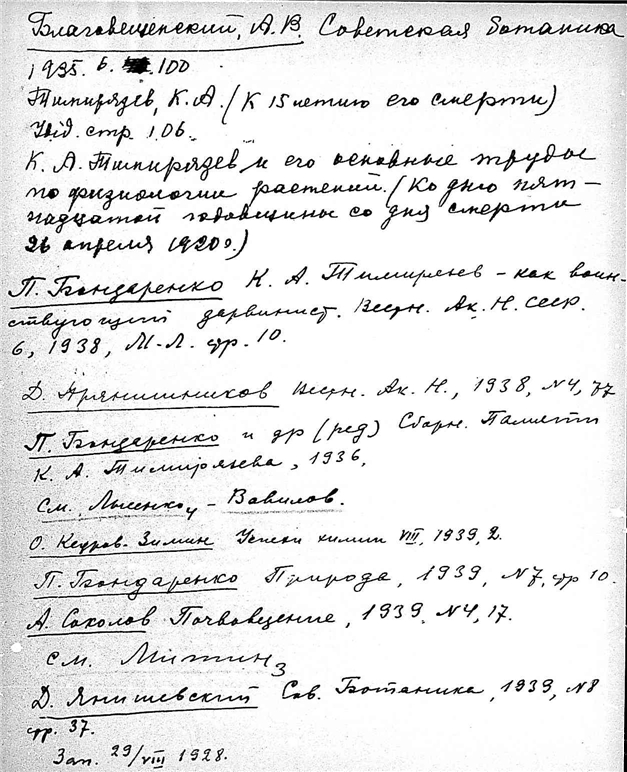 Благовещенский, А.В. Советская ботаника
1935. 6. 100
Тимирязев, К.А. (К 15 летию его смерти)
стр. 106.
К. А. Тимирязев и его основные труды
по физиологии растений. (Ко дню пят-
надцатой годовщины со дня смерти
26 апреля 1920 г.)
П. Бондаренко К. А. Тимирязев - как воин-
ствующий дарвинист. Вестн. Ак. Н. СССР.
6, 1938, М-Л. стр. 10.
Д. Прянишников Вестн. Ак. Н., 1938, №4, 77
П. Бондаренко и др (ред) Сборн. Памяти
К. А. Тимирязева, 1936,
См. Лысенко, - Вавилов.
О. Кедров-Зихман Успехи химии VIII, 1939, 2.
П. Бондаренко Природа, 1939, №7, стр 10.
А. Соколов Почвоведение, 1939, №4, 17.
см. Митин 3
Д. Янишевский Сов. Ботаника, 1939, №8
стр. 37.
Зап. 29/VIII 1928.